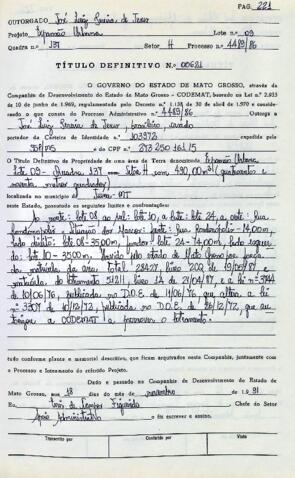 PAG. 221
OUTORGADO José Luiz
Projeto Expansão Urbana Lote n.o 09
Quadra n.o 137 Setor H Processo n.o 4489/86
TÍTULO DEFINITIVO N.o 00621
O GOVERNO DO ESTADO DE MATO GROSSO, através da
Companhia de Desenvolvimento do Estado de Mato Grosso - CODEMAT, baseado na Lei n.o
de 10 de junho de 1.969, regulamentada pelo Decreto n.o 1.138 de 30 de abril de 1970 e considerando
o que consta do Processo Administrativo n.o 4489/86 Outorga a
José Luiz brasileiro, casado
portador da Carteira de Identidade n.o 103972 expedida pela
e do CPF
O Título Definitivo de Propriedade de uma área de Terra denominada Expansão Urbana
lote 09 - Quadra 137 - Setor H com 490,00m² (quatrocentos e
noventa metros quadrados)
localizada no município de - MT
Neste Estado, possuindo os seguintes limites e confrontações:
Ao norte: lote 08, ao sul: lote 10, a leste: lote 24, a oeste: Rua
Rondonópolis - frente: Rua Rondonópolis - 14,00m,
lado direito: lote 08 - 35,00m, fundos: lote 24 - 14,00m, lado esquerdo:
lote 10 - 35,00m.
matrícula da área total 28427, livro
matrícula do loteamento
10/06/76, publicada no D.O.E. de 11/06/76 que altera a lei
3307 de 10/12/72, publicada no D.O.E. de 26/12/72, que
a CODEMAT a promover o loteamento.
tudo conforme planta e memorial descritivo, que ficam arquivados nesta Companhia, juntamente com
o Processo e loteamento do referido Projeto.
Dado e passado na Companhia de Desenvolvimento do Estado de
Mato Grosso, aos 18 dias do mês de novembro de 1.991
Eu, de Campos Figueiredo Chefe do Setor
Apoio Administrativo o fiz escrever e assino.
Transcrito por Conferido por Visto